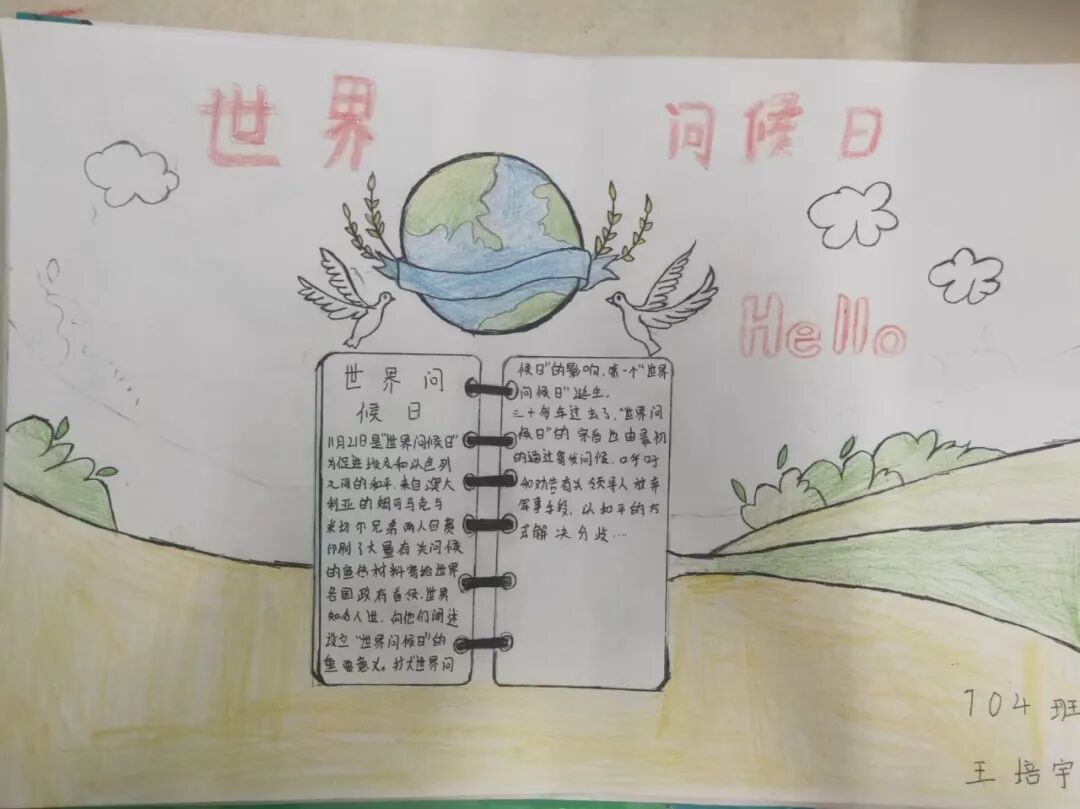 世界 问候日
Hello
世界问
候日
11月21日是"世界问候日"
为促进埃及和以色列
之间的和平,来自澳大
利亚的姆可马克与
米切尔兄弟两人自费
印刷了大量有关问候
的宣传材料寄给世界
各国政府首领,世界
知名人士,向他们阐述
设立"世界问候日"的
重要意义。扩大"世界问
候日"的影响,第一个"世界
问候日"诞生,
三十多年过去了,"世界问
候日"的宗旨也由最初
的通过寄发问候,呼吁
和劝告有关领导人放弃
军事手段,以和平的方
式解决分歧…
704班
王培宇